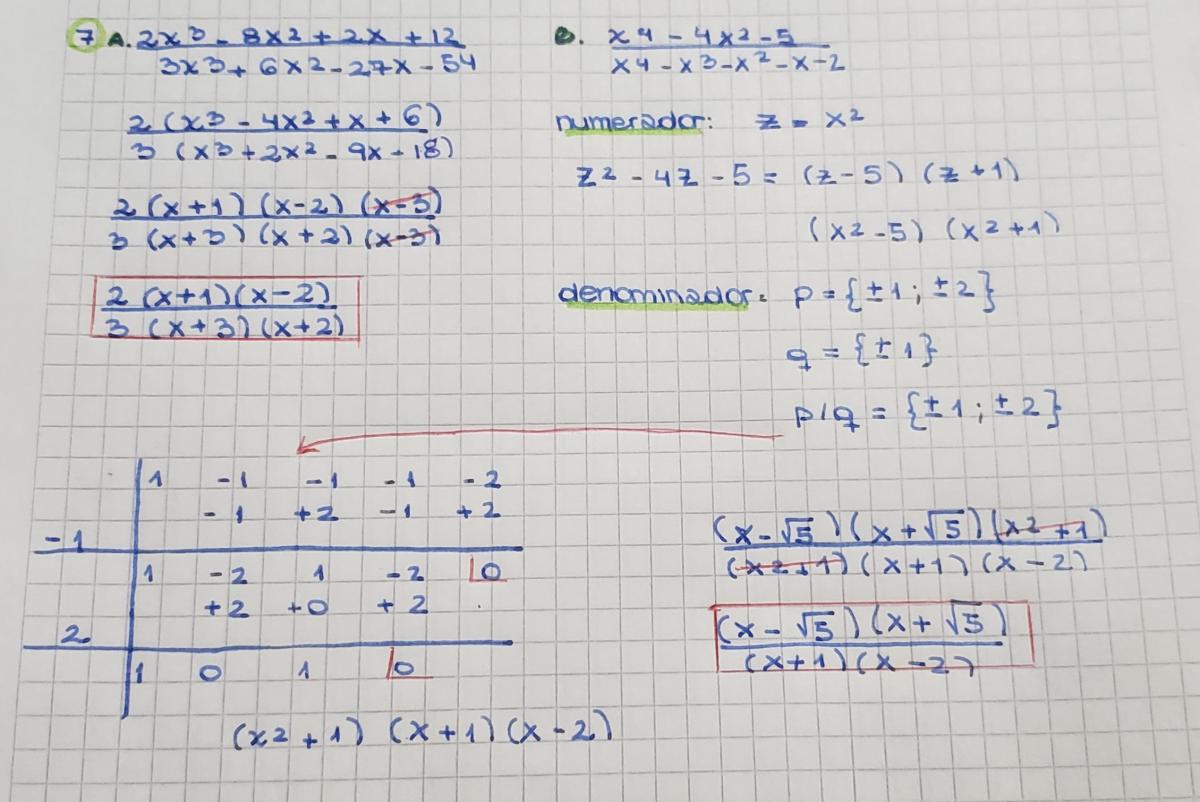 7 A. 2x3 - 8x2 + 2x + 12
3x3 + 6x2 - 27x - 54
2 (x3 - 4x2 + x + 6)
3 (x3 + 2x2 - 9x - 18)
2 (x+1) (x-2) (x-3)
3 (x+3) (x+2) (x-3)
2 (x+1)(x-2)
3 (x+3)(x+2)
B. x4 - 4x2 - 5
x4 - x3 - x2 - x - 2
numerador: z = x2
z2 - 4z - 5 = (z-5) (z+1)
(x2-5) (x2+1)
denominador: p = {±1 ; ±2}
q = {±1}
p/q = {±1 ; ±2}
1 -1 -1 -1 -2
-1 +2 -1 +2
-1
1 -2 1 -2 0
+2 +0 +2
2
1 0 1 0
(x2+1) (x+1) (x-2)
(x-√5) (x+√5) (x2+1)
(x2+1) (x+1) (x-2)
(x-√5) (x+√5)
(x+1) (x-2)